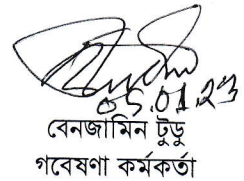 05.01.23
বেনজামিন টুডু
গবেষণা কর্মকর্তা